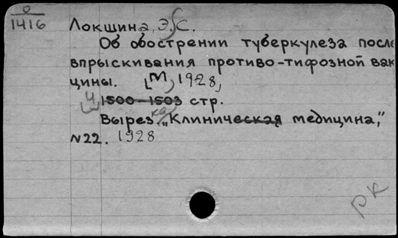 0
1416
Локшина, Э.С.
Об обострении туберкулеза после
впрыскивания противо-тифозной вак
цины. [М, 1928,
4 1500-1503 стр.
Вырез. "Клиническая медицина,"
№22. 1928
РК